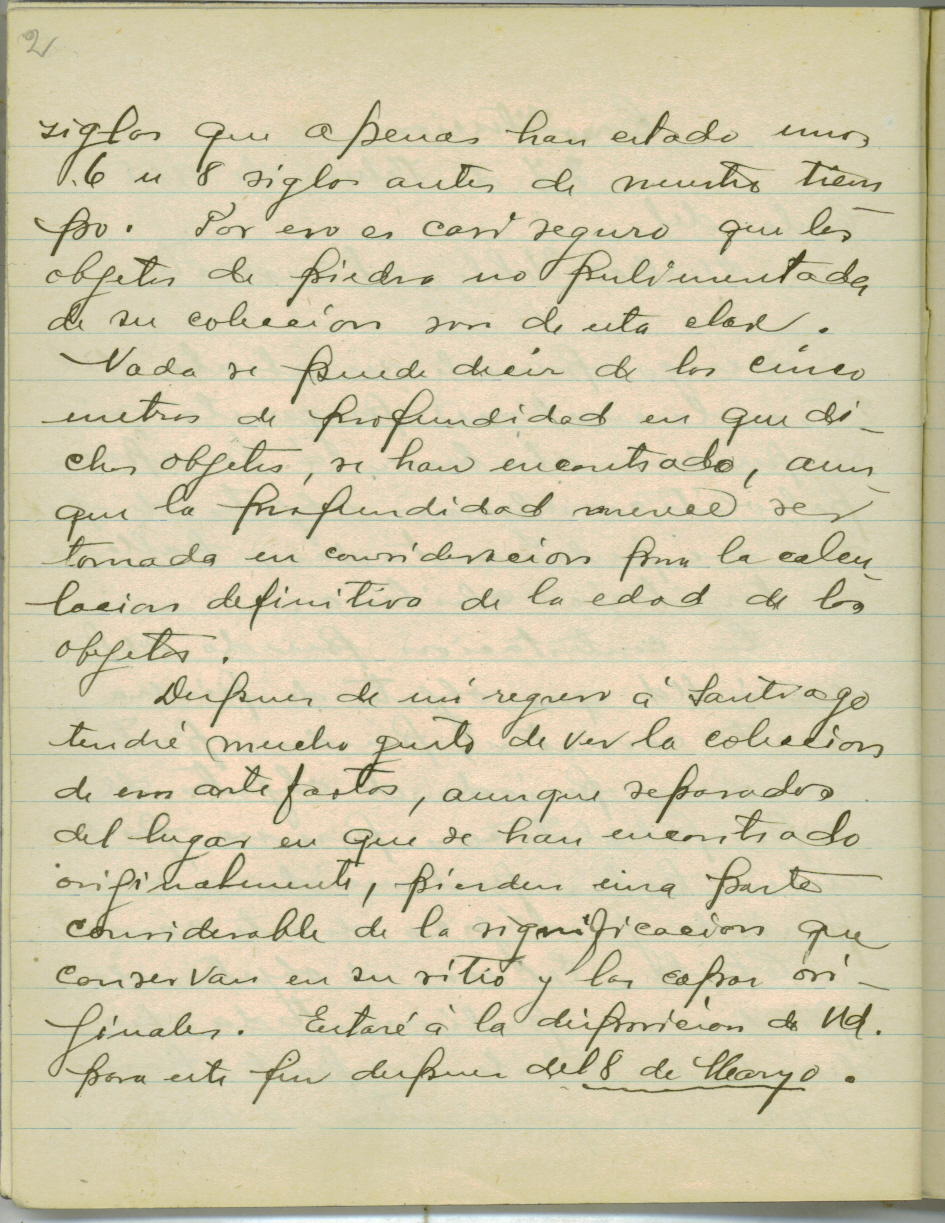 2
siglos que apenas han estado unos
6 u 8 siglos antes de nuestro tiem
po. Por eso es casi seguro que los
objetos de piedra no pulimentada
de su coleccion son de esta clase.
Nada se puede decir de los cinco
metros de profundidad en que di-
chos objetos, se han encontrado, aun-
que la profundidad merece ser
tomada en consideracion para la calcu-
lacion definitiva de la edad de los
objetos.
Despues de mi regreso á Santiago
tendré mucho gusto de ver la coleccion
de esos artefactos, aunque separados
del lugar en que se han encontrado
originalmente, pierden una parte
considerable de la significacion que
conservan en su sitio y las capas ori-
ginales. Estaré á la disposicion de Ud.
para este fin despues del 8 de Marzo.